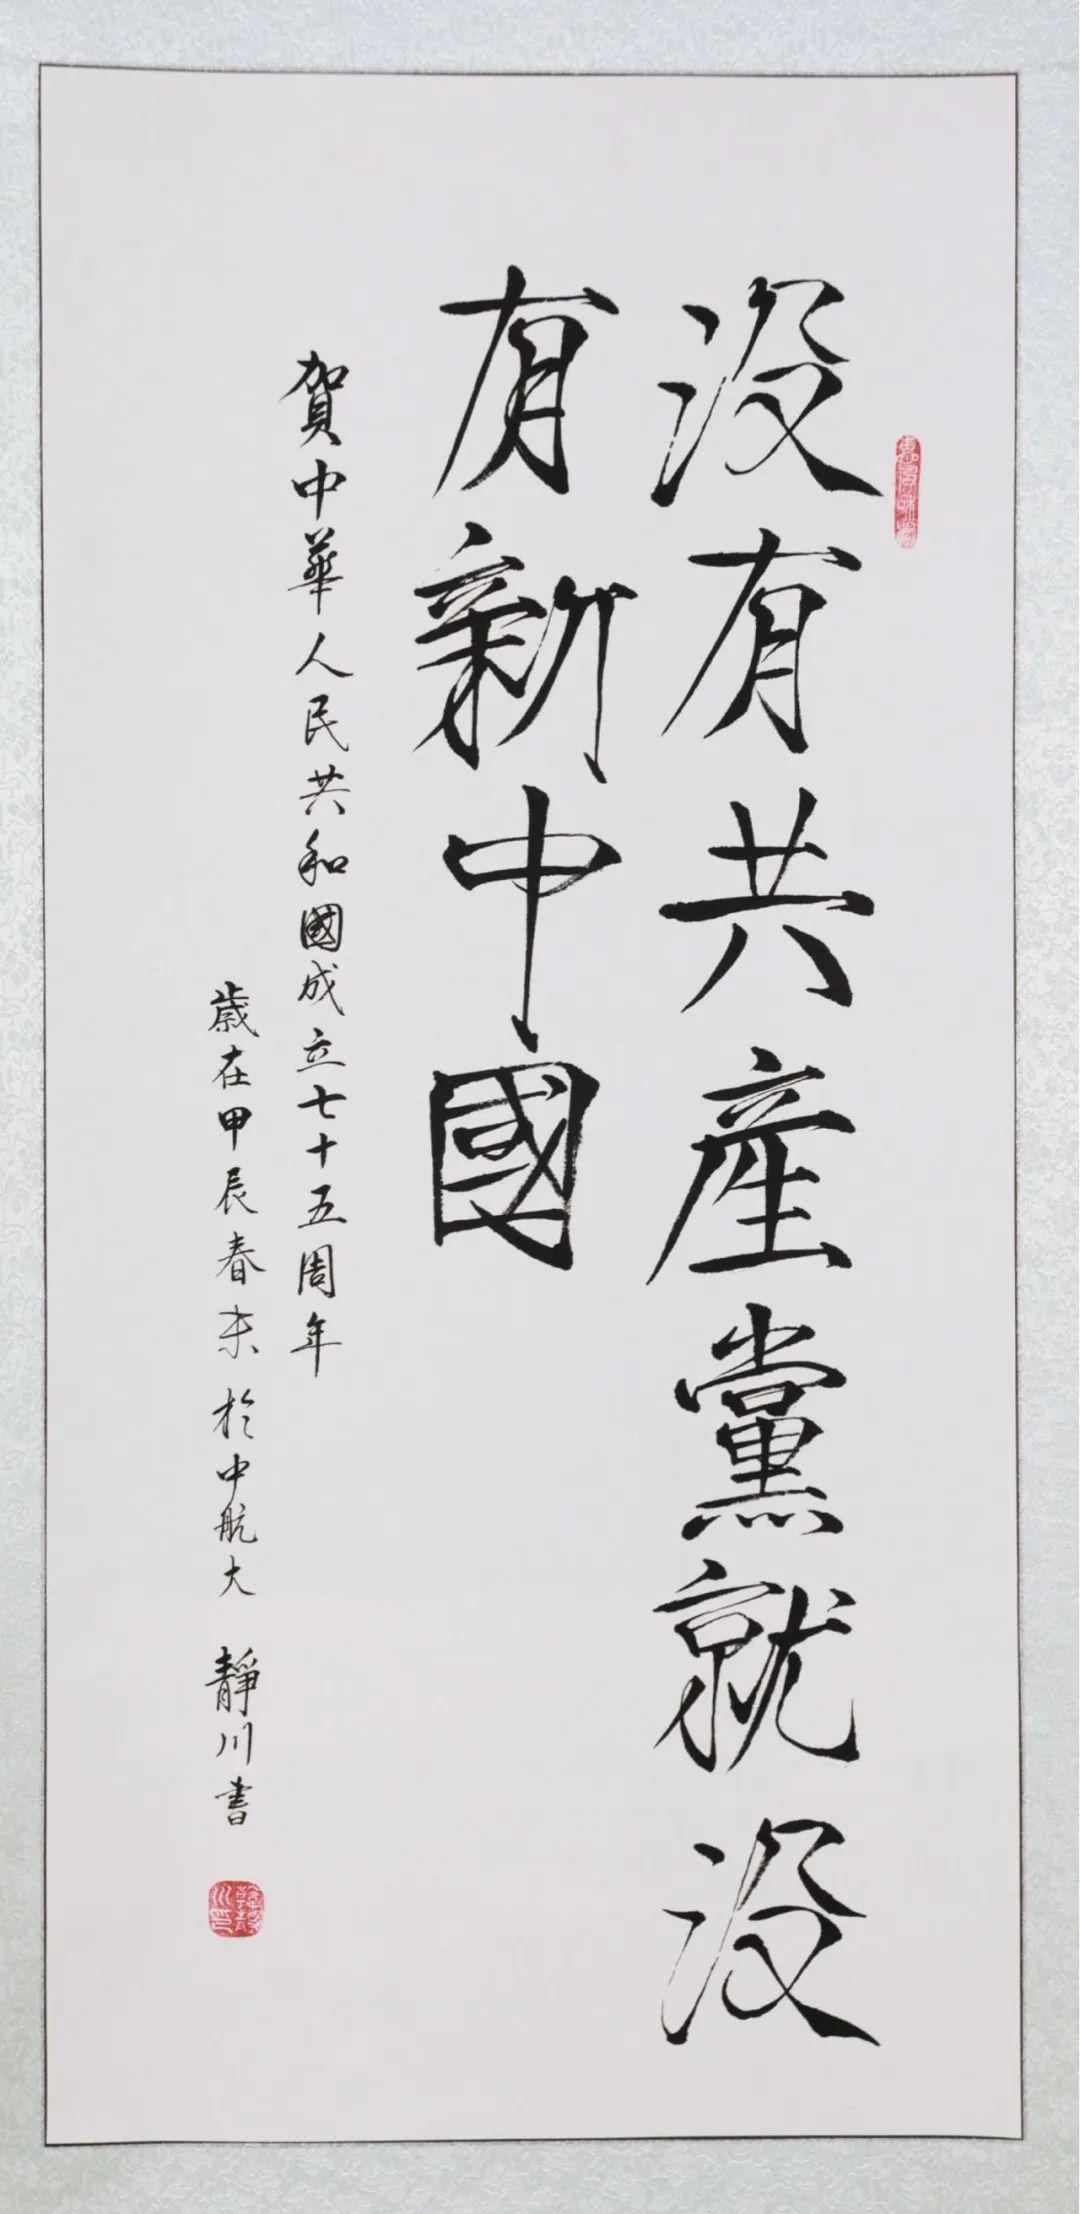 没有共產黨就没
有新中國
賀中華人民共和國成立七十五周年
歲在甲辰春末於中航大 靜川書